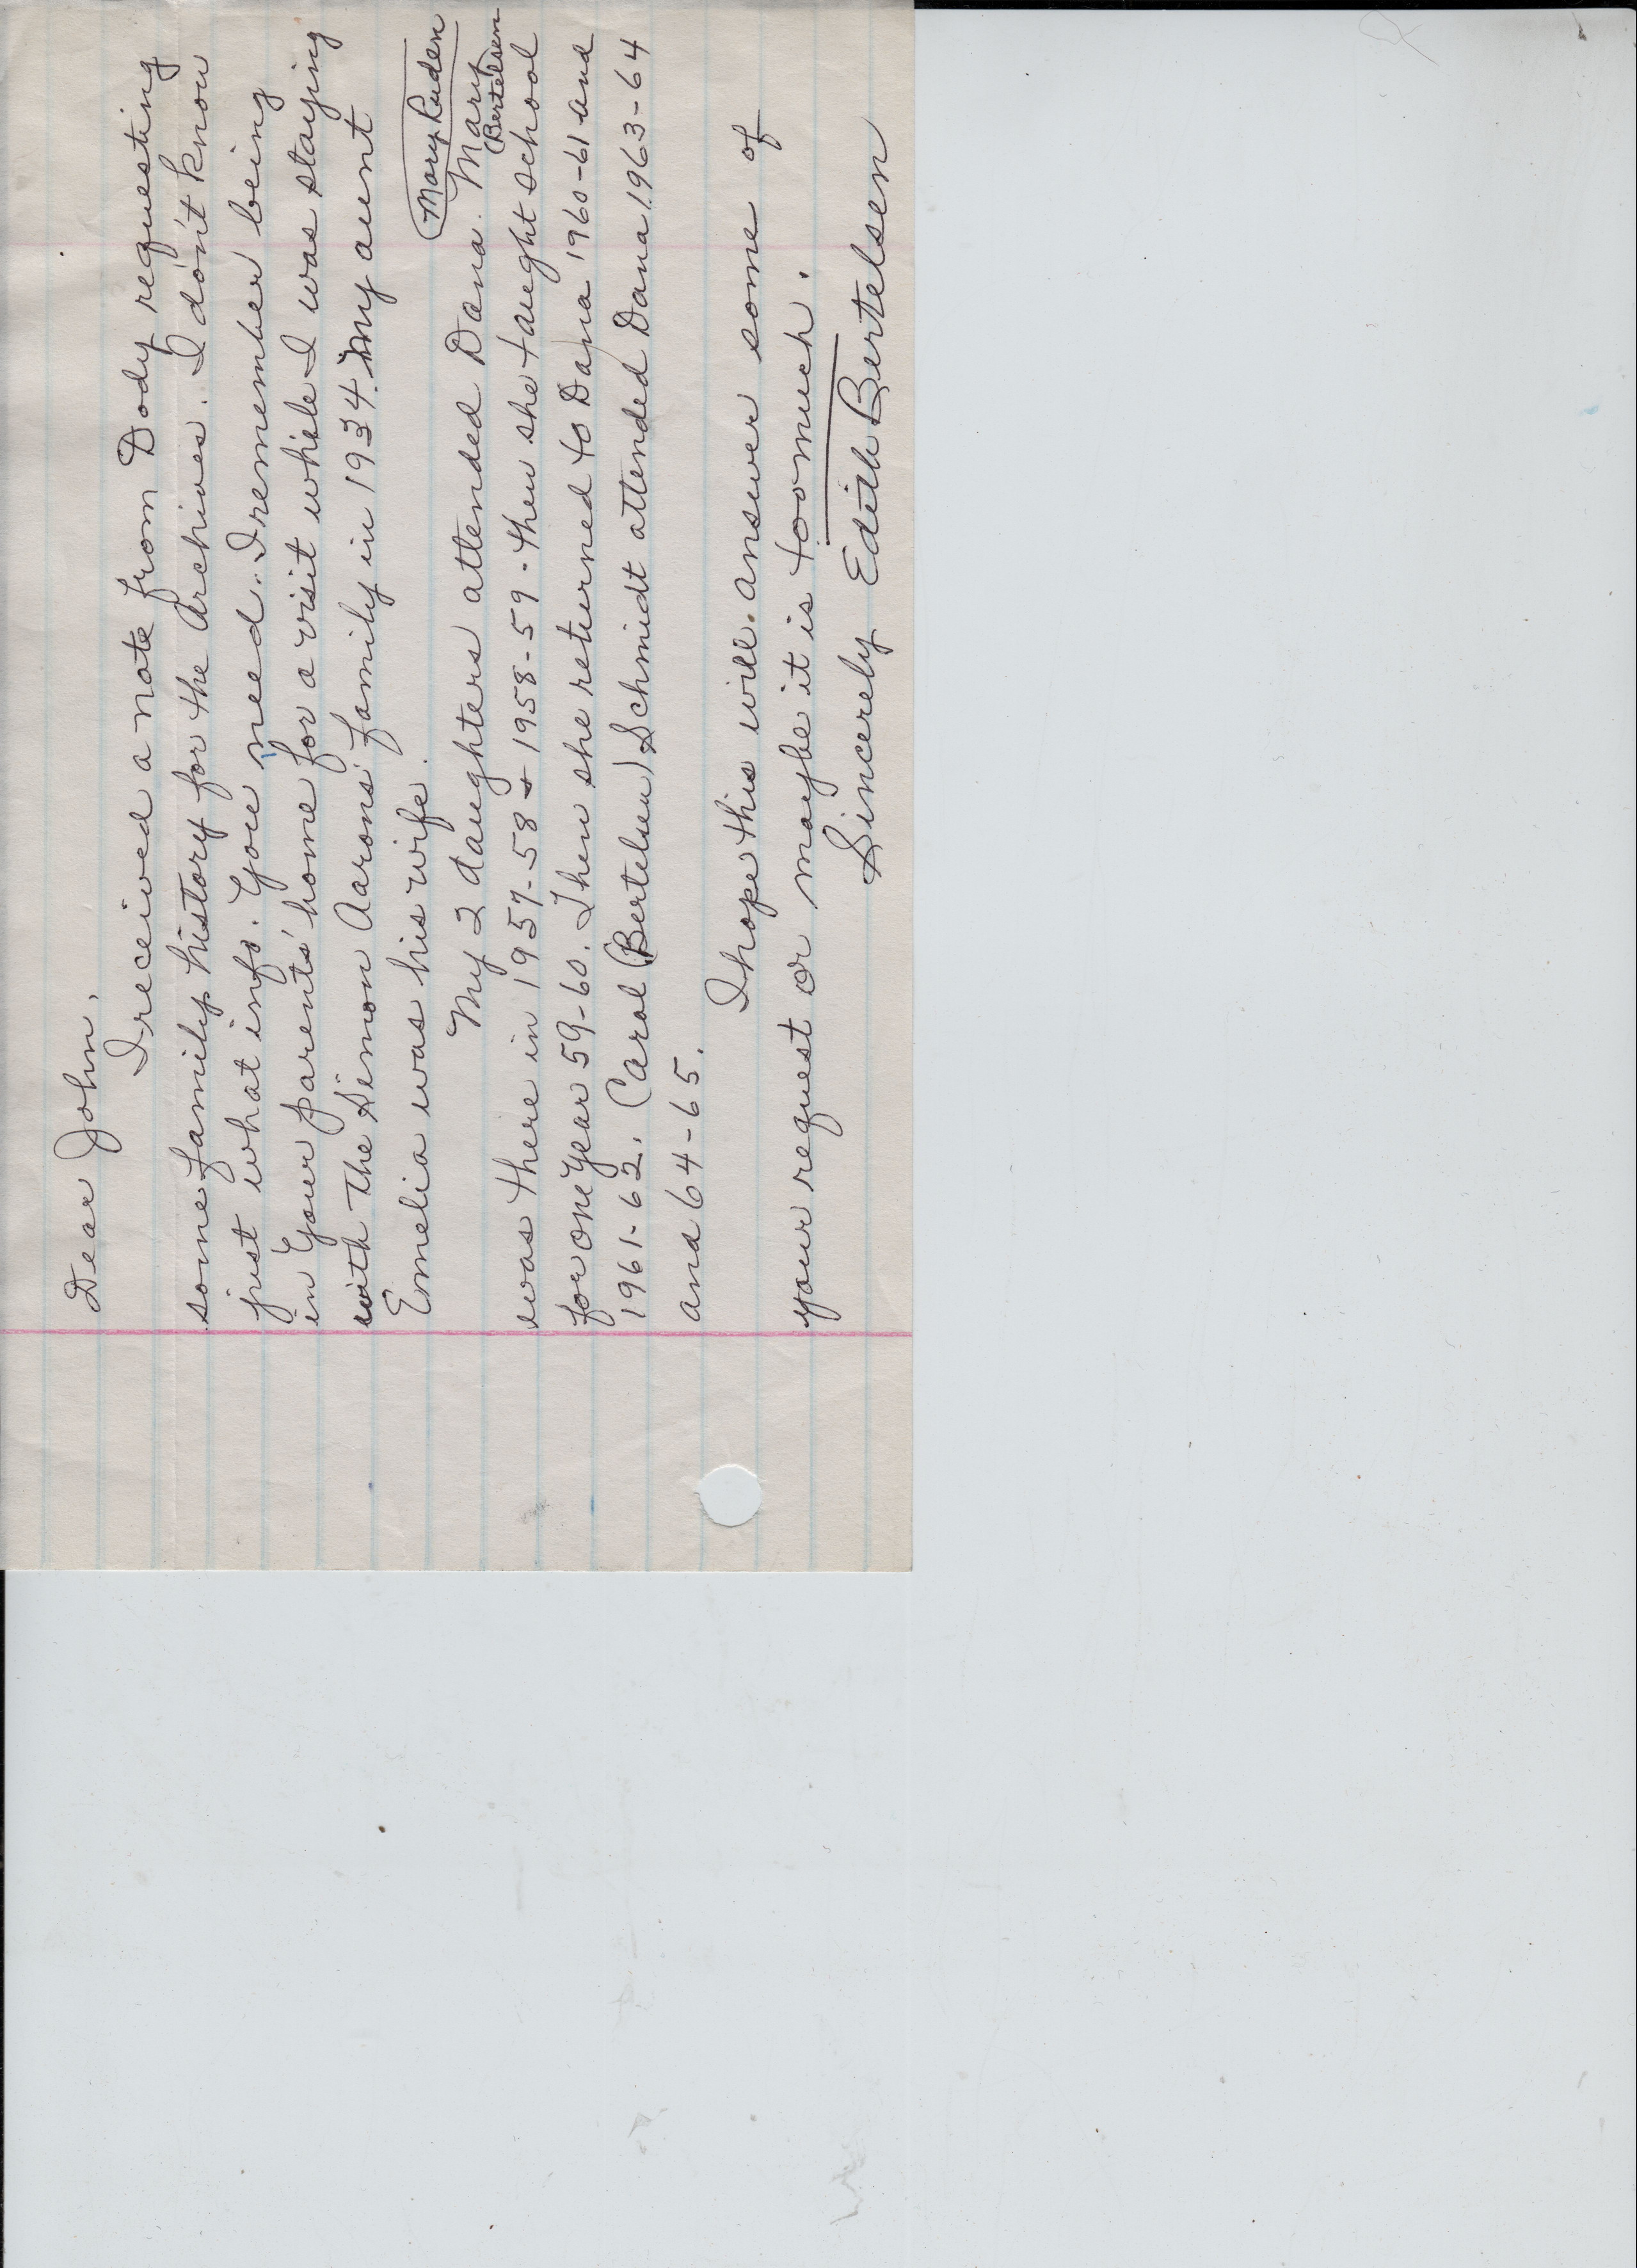 Dear John,
I received a note from Dody requesting
some family history for the Archives. I don't know
just what info. You need. I remember being
in Your parents' home for a visit while I was staying
with the Simon Aarons' family in 1934. My aunt
Emelia was his wife.
Mary Ruden
My 2 daughters attended Dana. Mary
(Bertelsen
was there in 1957-58 & 1958-59 - then she taught school
for one year 59-60. Then she returned to Dana 1960-61 and
1961-62. Carol (Bertelsen) Schmidt attended Dana 1963-64
and 64-65.
I hope this will answer some of
your request or maybe it is too much.
Sincerely Edith Bertelsen